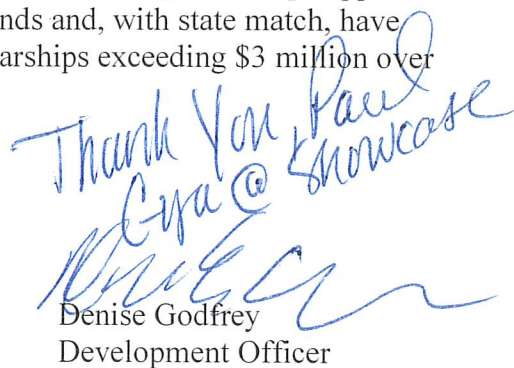 nds and, with state match, have
arships exceeding $3 million over
Thank You, Paul
Cya @ Showcase
Denise Godfrey
Development Officer